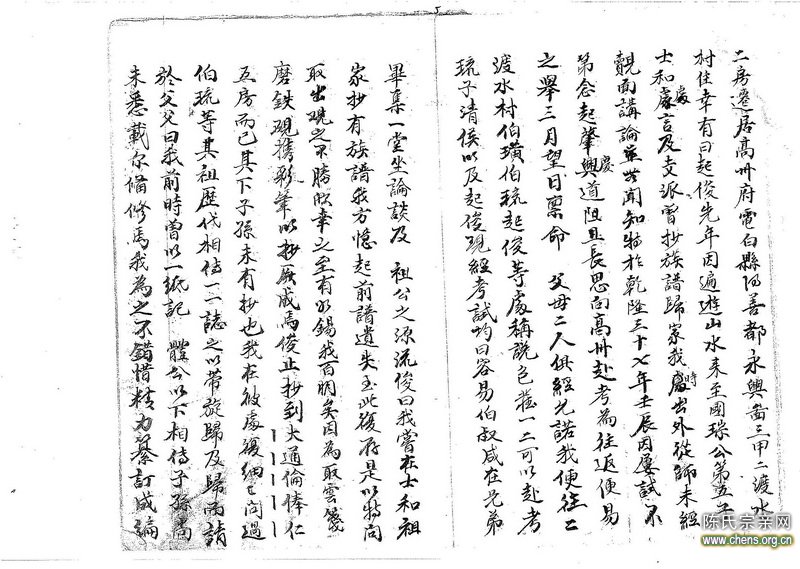 二房遷居高州府電白縣阿善都永興崮三甲二渡水
村住幸有曰起俊先年因遍遊山水来至國璪公第五子
士和處言及支派曾抄族譜歸家我時出外從師未經
覿面講論並世聞知特於乾隆三十七年壬辰因慶試不
第念起肇慶興道阻且長思向高州赴考為往返便易
之舉三月望日稟命 父母二人俱經允諾我便往二
渡水村伯璜伯琉起俊等處稱説色莊一二可以赴考
琉子清侯以及起俊現經考試均曰容易伯叔咸在兄弟
畢集一堂坐論談及 祖公之源流俊曰我嘗在士和祖
家抄有族譜我方憶起前譜遺失至此復存是以特向
取出觀之不勝欣幸之至有如錫我百朋矣因為取雲箋
磨鉄硯携彩筆以抄厥成焉俊止抄到大通倫倖仁
五房而已其下子孫未有抄也我在彼處復細々问過
伯琉等其祖歷代相传一二誌之以带旋歸及歸而請
於父父曰我前時曾以一紙記 公以下相传子孫尚
未悉載尔偹修焉我為之不錯惜精力纂訂成編
5
陈氏宗亲网
www.chens.org.cn